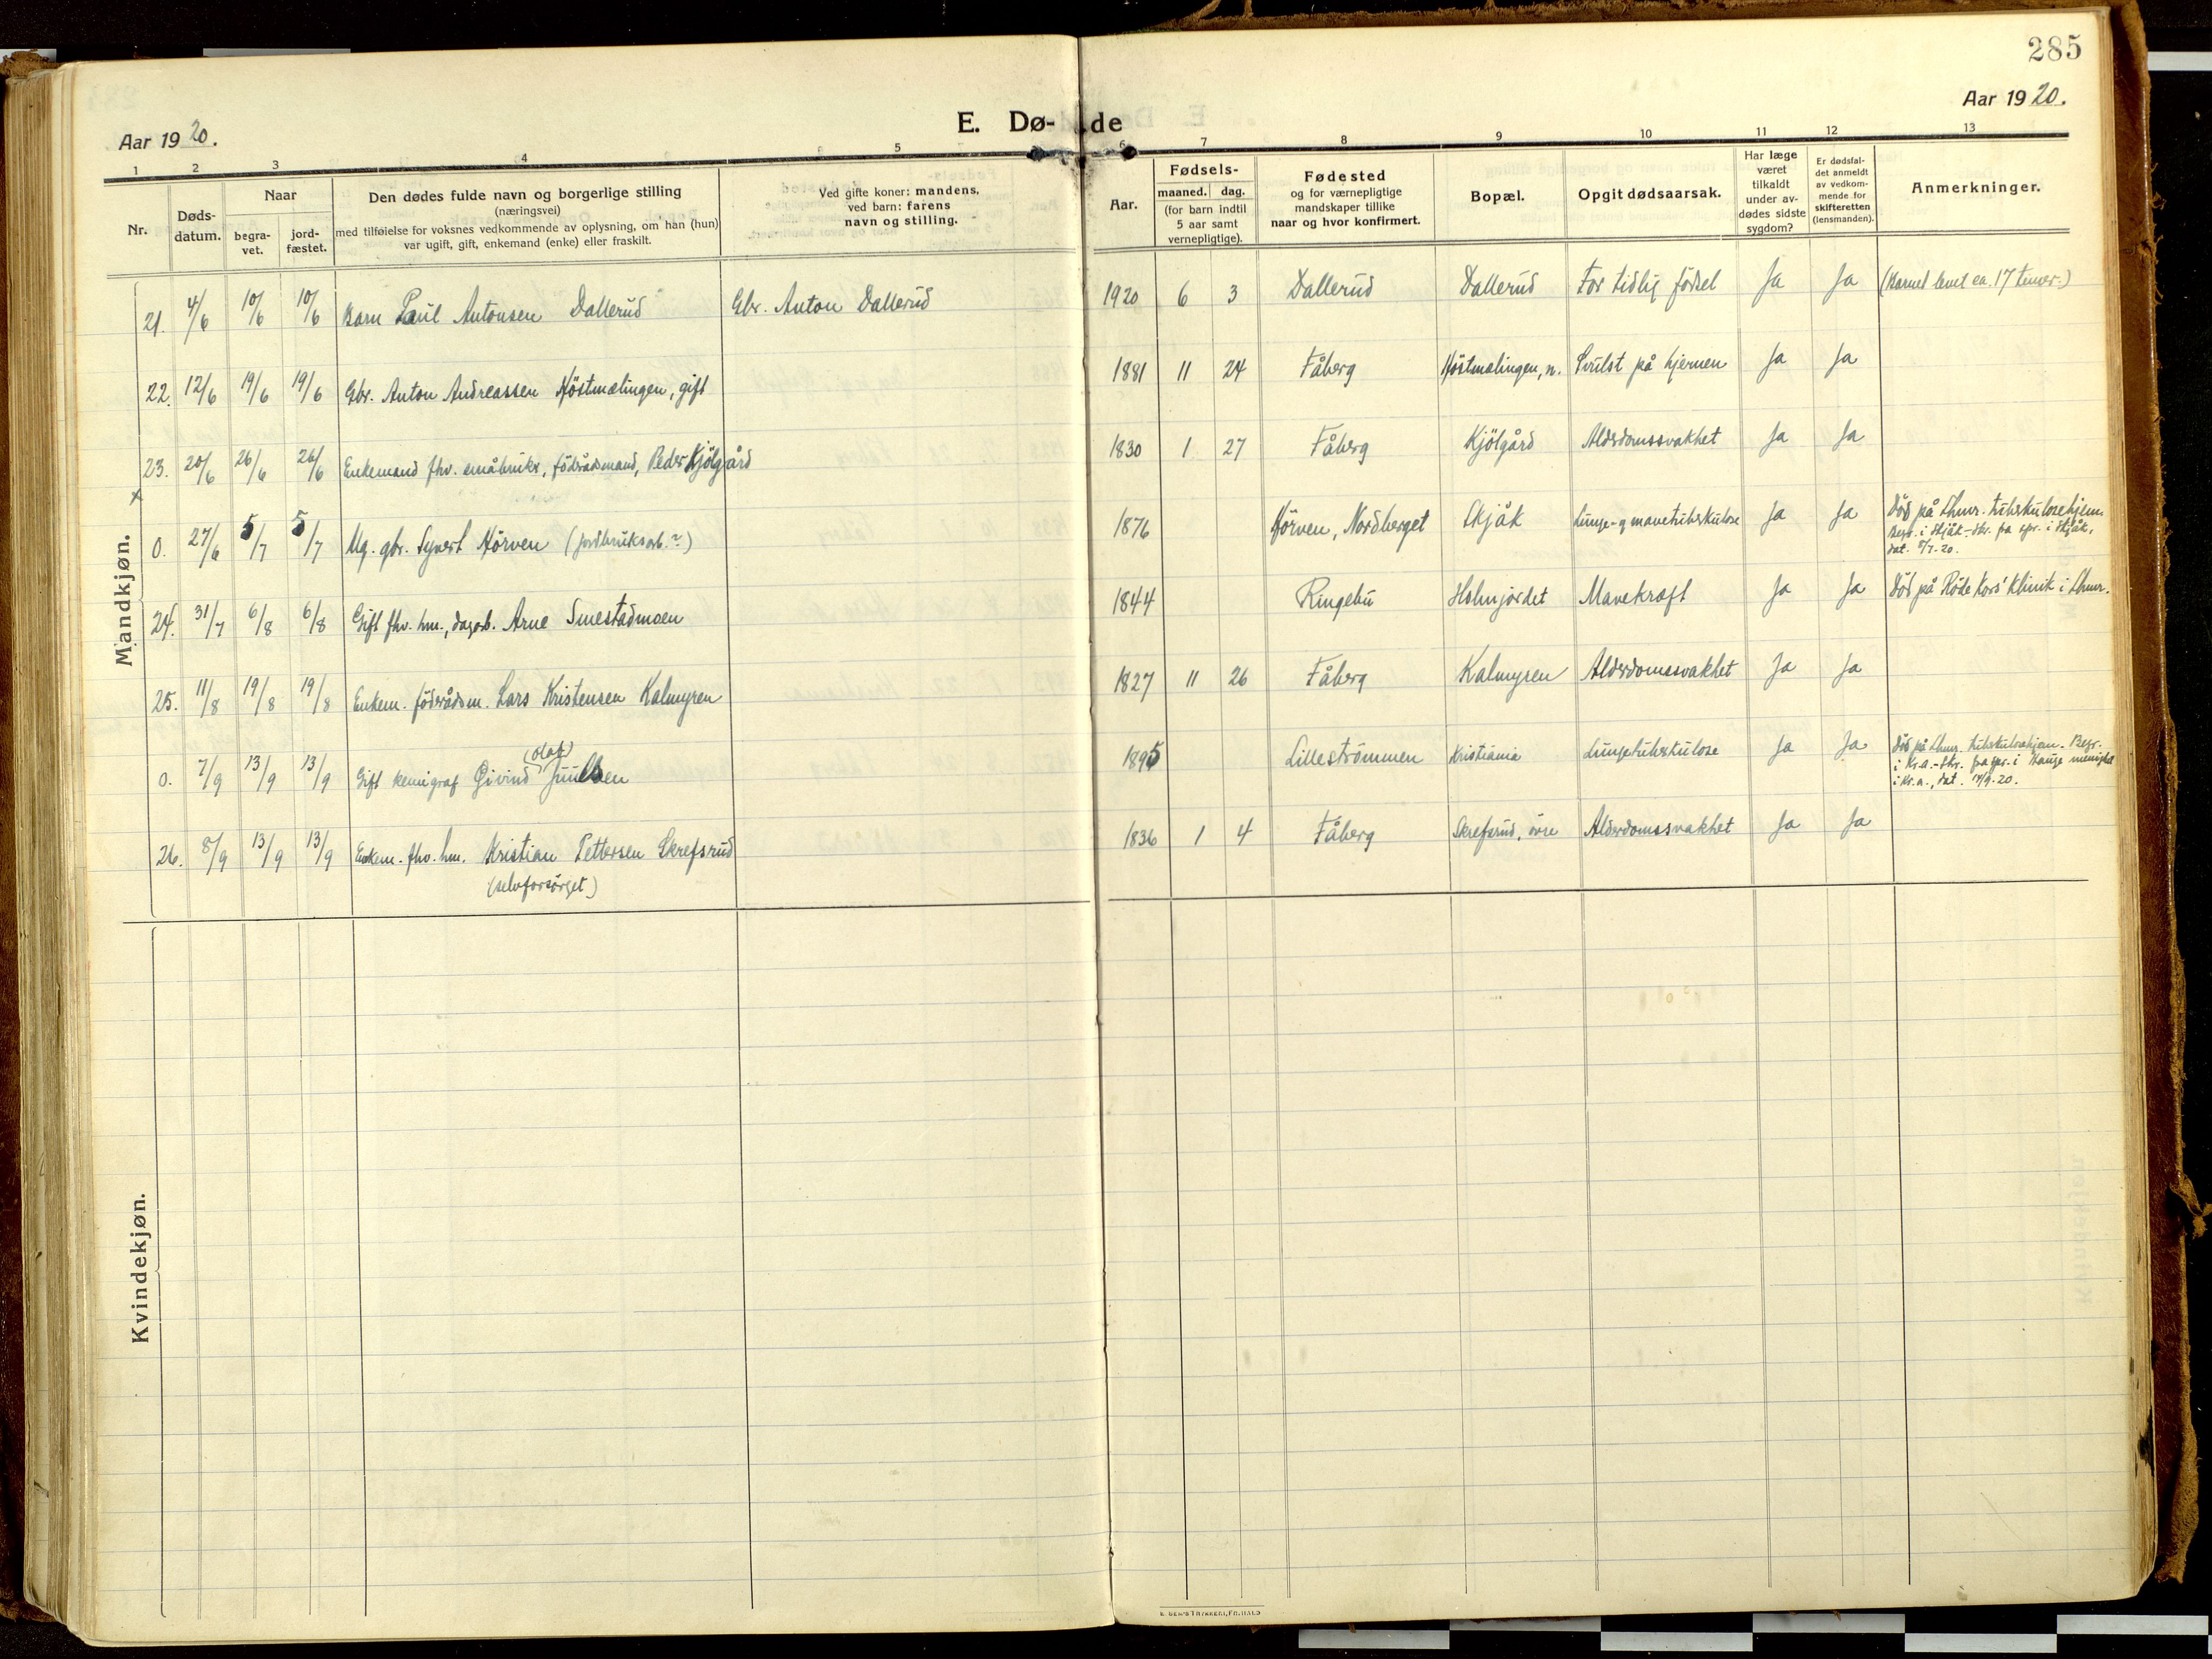 285
Aar 1920.
Aar 1920.
E. Dø-de
1 2 3 4 5 6 7 8 9 10 11 12 13
Nr.
Døds-
datum.
Naar
begra-
vet.
jord-
fæstet.
Den dødes fulde navn og borgerlige stilling
(næringsvei)
med tilføielse for voksnes vedkommende av oplysning, om han (hun)
var ugift, gift, enkemand (enke) eller fraskilt.
Ved gifte koner: mandens,
ved barn: farens
navn og stilling.
Aar.
Fødsels-
maaned. dag.
(for barn indtil
5 aar samt
vernepligtige).
Fødested
og for værnepligtige
mandskaper tillike
naar og hvor konfirmert.
Bopæl.
Opgit dødsaarsak.
Har læge
været
tilkaldt
under av-
dødes sidste
sygdom?
Er dødsfal-
det anmeldt
av vedkom-
mende for
skifteretten
(lensmanden).
Anmerkninger.
Mandkjøn.
21. 4/6 10/6 10/6 Barn Paul Antonsen Dallerud Gbr. Anton Dallerud 1920 6 3 Dallerud Dallerud For tidlig födsel Ja Ja (Barnet levet ca. 17 timer.)
22. 12/6 19/6 19/6 Gbr. Anton Andreassen Höstmælingen, gift 1881 11 24 Fåberg Höstmælingen, n. Svulst på hjernen Ja Ja
23. 20/6 26/6 26/6 Enkemand fhv. småbruker, födrådsmand, Peder Kjölgård 1830 1 27 Fåberg Kjölgård Alderdomssvakhet Ja Ja
0. 27/6 5/7 5/7 Ug. gbr. Syvert Hörven (jordbruksarb.?) 1876 Hörven, Nordberget Skjåk Lunge- og mavetuberkulose Ja Ja Död på Lhmr. tuberkulosehjem.
Begr. i Skjåk - skr. fra spr. i Skjåk,
dat. 5/7-20.
24. 31/7 6/8 6/8 Gift fhv. hm., dagarb. Arne Smestadmoen 1844 Ringebu Holmjordet Mavekræft Ja Ja Död på Röde Kors' Klinik i Lhmr.
25. 11/8 19/8 19/8 Enkem. födrådsm. Lars Kristensen Kalmyren 1827 11 26 Fåberg Kalmyren Alderdomssvakhet Ja Ja
0. 7/9 13/9 13/9 Gift kemigraf Öivind (Olaf) Juulsen 1895 Lilleströmmen Kristiania Lungetuberkulose Ja Ja Död på Lhmr. tuberkulosehjem. Begr.
i Kr.a. - skr. fra spr. i Hauge menighet
i Kr.a., dat. 14/9-20.
26. 8/9 13/9 13/9 Enkem. fhv. hm. Kristian Pettersen Skrefsrud 1836 1 4 Fåberg Skrefsrud, övre Alderdomssvakhet Ja Ja
(selvforsörget)
Kvindekjøn.